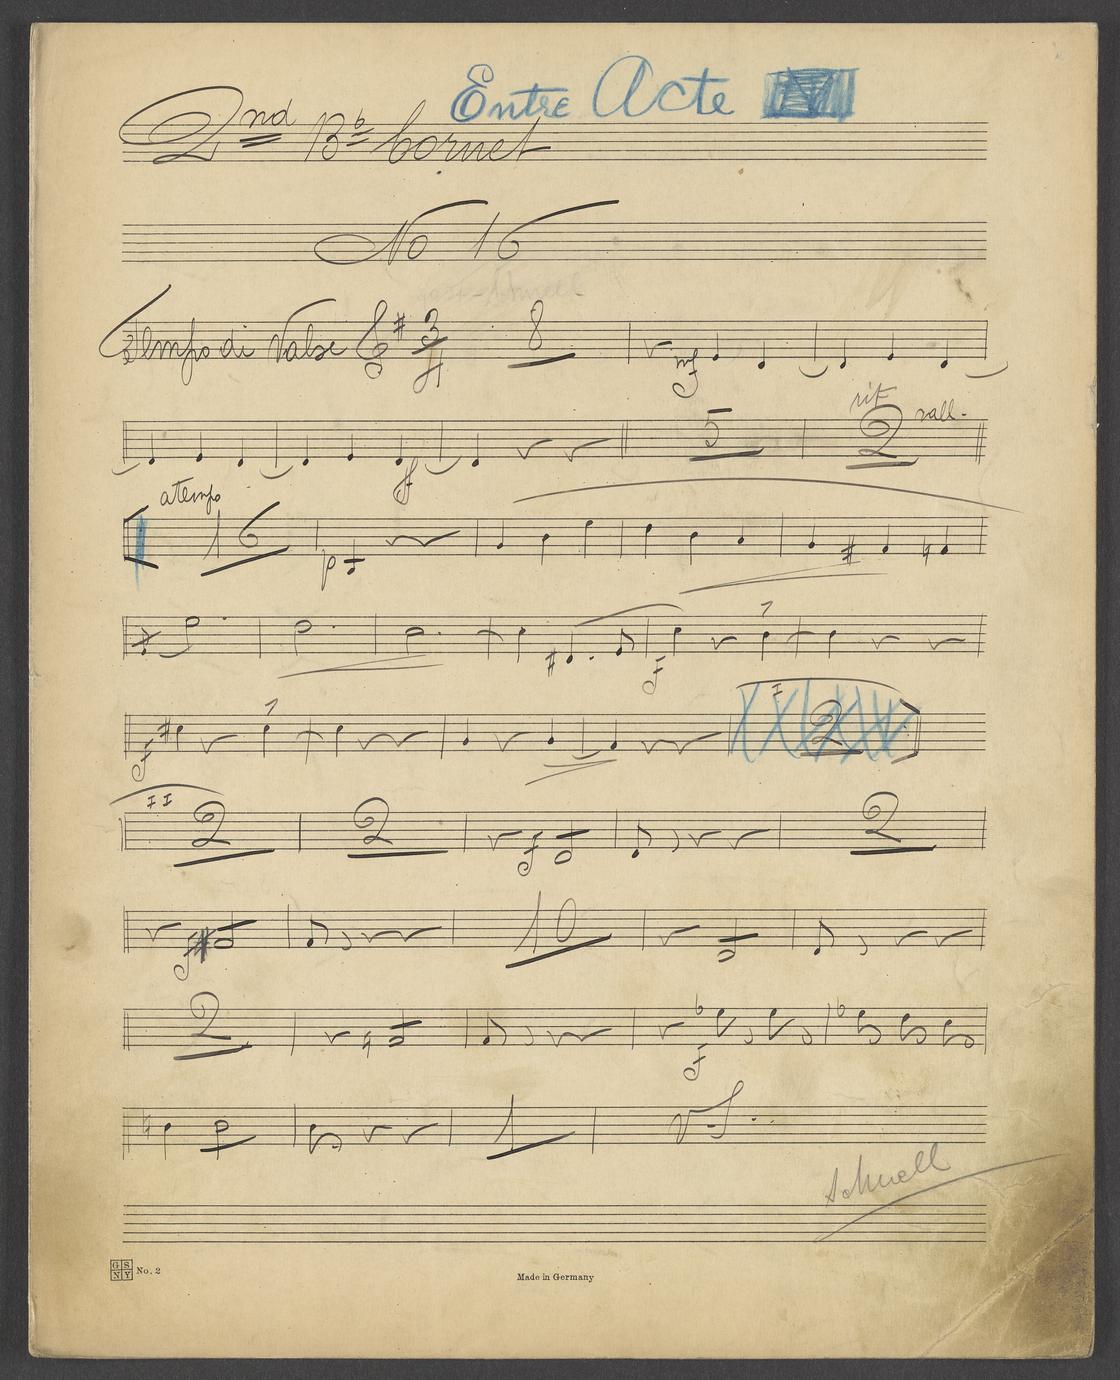 Entre Acte IV
2nd Bb Cornet
No 16
Tempo di Valse 3 4 8
mf
rit
5 2 rall.
f
a tempo
16
p
f
f
I
2
II
2 2 f 2
f 10
2
f
1 V.S.
Schnell
GS
NY No. 2
Made in Germany